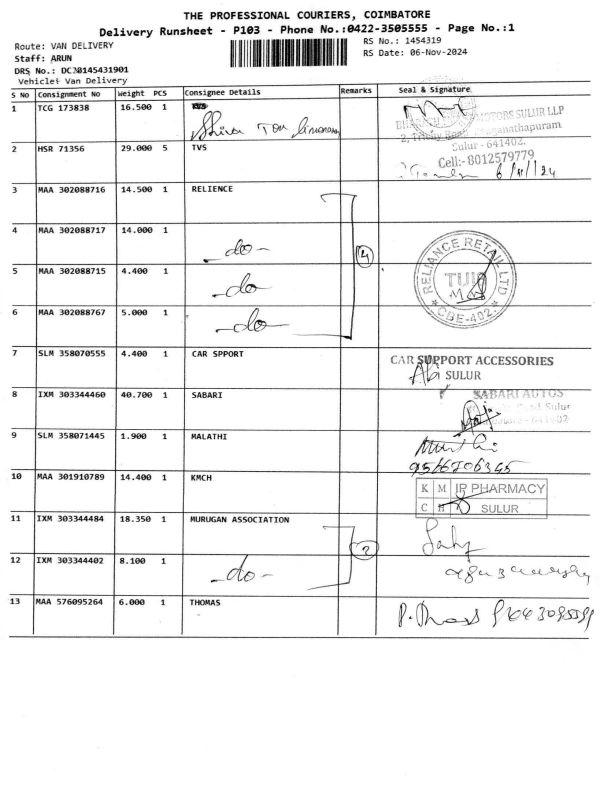 THE PROFESSIONAL COURIERS, COIMBATORE
Delivery Runsheet - P103 - Phone No.:0422-3505555 - Page No.:1
Route: VAN DELIVERY
RS No.: 1454319
Staff: ARUN
RS Date: 06-Nov-2024
DRS No.: DC20145431901
Vehicle: Van Delivery
S No Consignment No Weight PCS Consignee Details Remarks Seal & Signature
1 TCG 173838 16.500 1 TVS
MOTORS SULUR LLP
2, Trichy Road
Sulur - 641402.
2 HSR 71356 29.000 5 TVS
Cell:- 8012579779
6/11/24
3 MAA 302088716 14.500 1 RELIENCE
4 MAA 302088717 14.000 1
-do-
4
RELIANCE RETAIL LTD
5 MAA 302088715 4.400 1
-do-
CBE-402.
6 MAA 302088767 5.000 1
-do-
7 SLM 358070555 4.400 1 CAR SPPORT
CAR SUPPORT ACCESSORIES
SULUR
8 IXM 303344460 40.700 1 SABARI
SABARI AUTOS
Road Sulur
641402
9 SLM 358071445 1.900 1 MALATHI
10 MAA 301910789 14.400 1 KMCH
K M IP PHARMACY
C H SULUR
11 IXM 303344484 18.350 1 MURUGAN ASSOCIATION
2
12 IXM 303344402 8.100 1
-do-
13 MAA 576095264 6.000 1 THOMAS